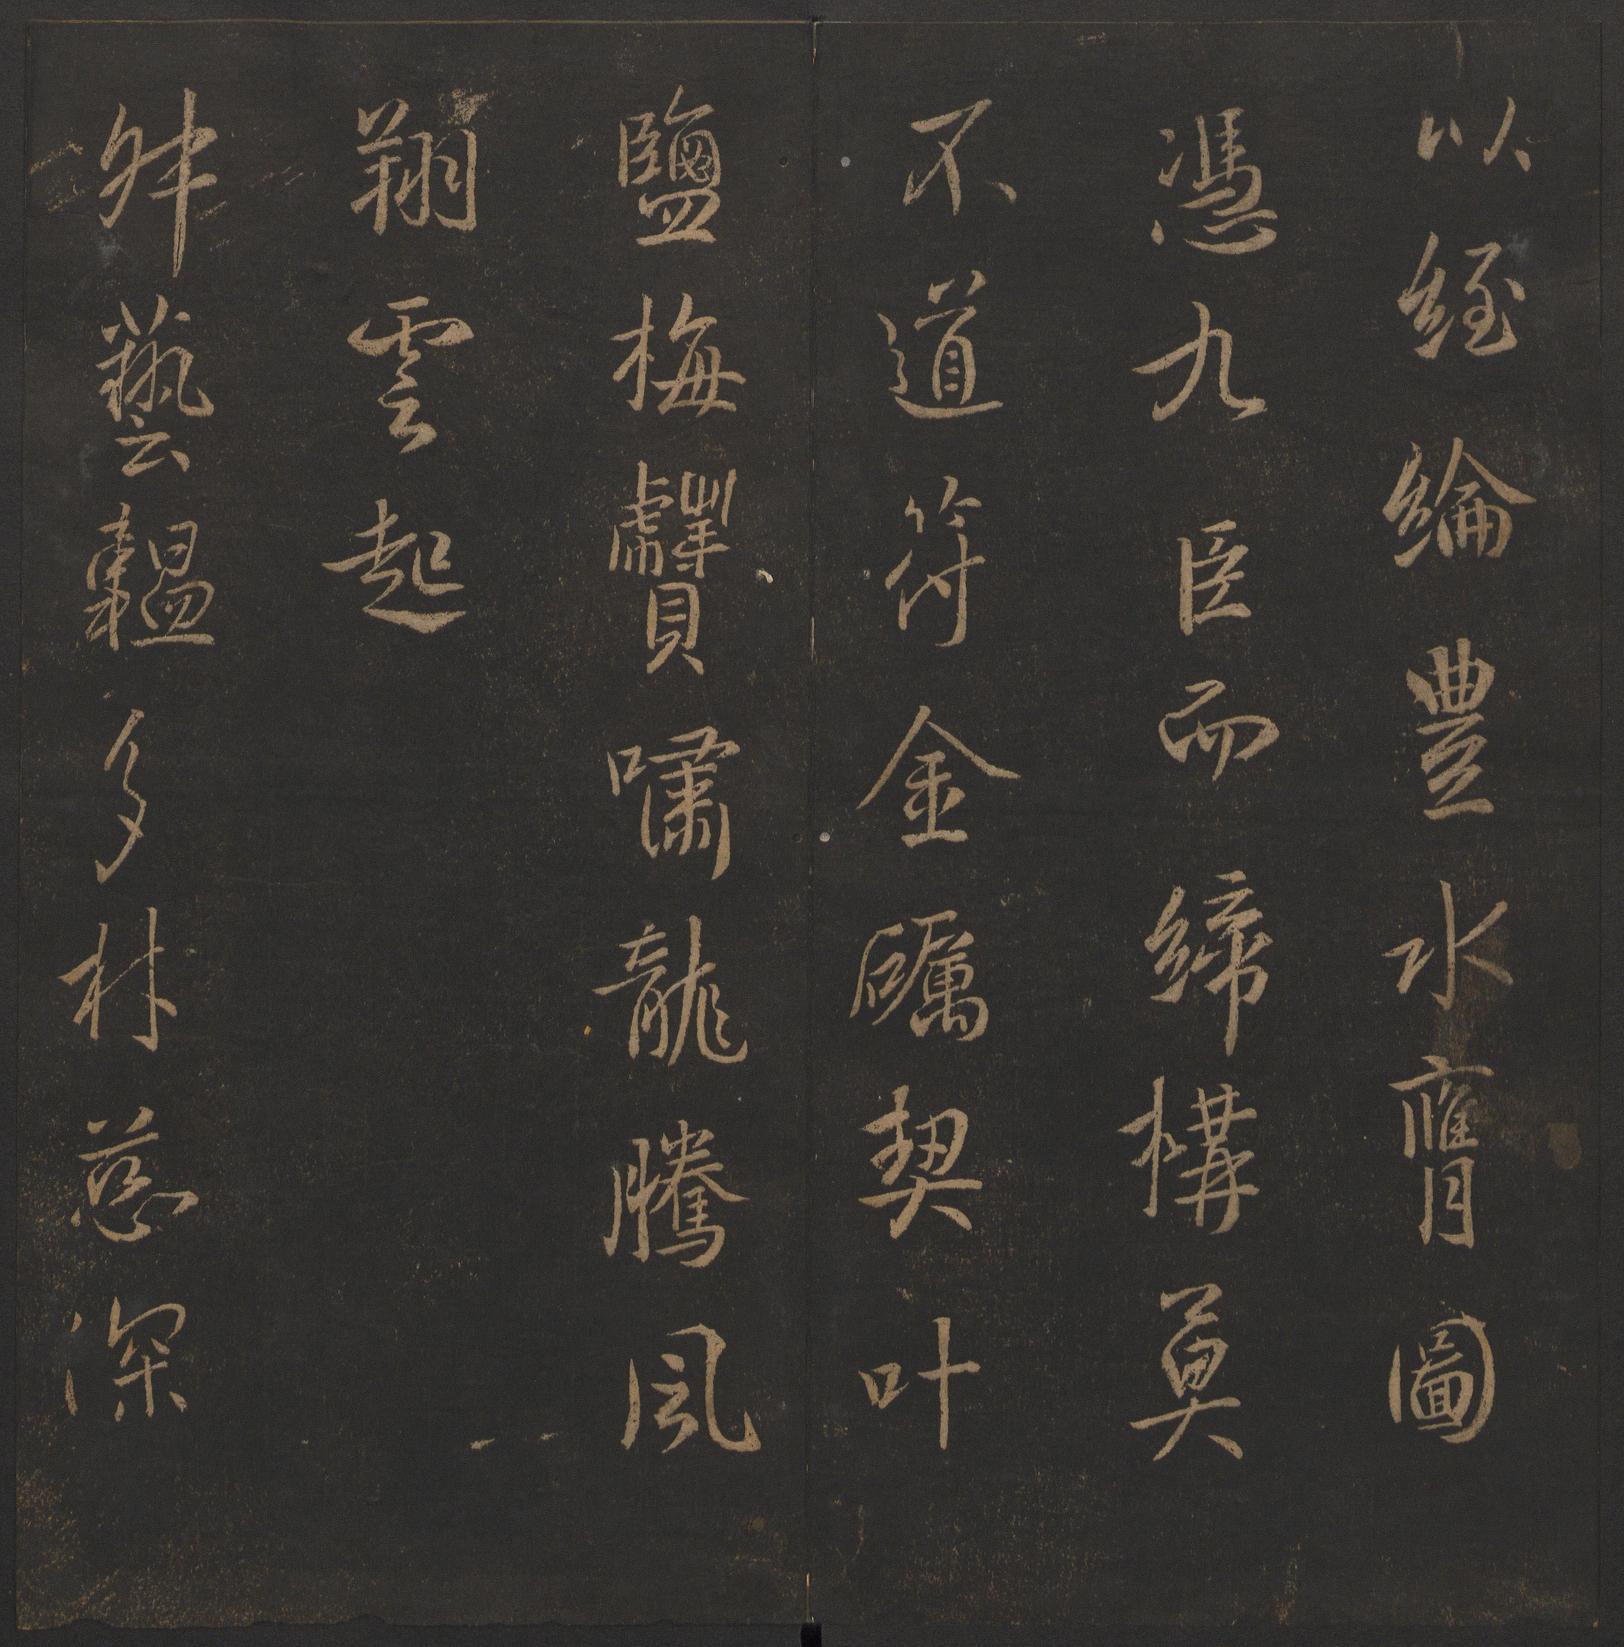 以經綸豊水膺圖
憑九臣而締構莫
不道符金礪契叶
鹽梅贙嘯龍騰風
翔雲起
舛藝韞多材慈深